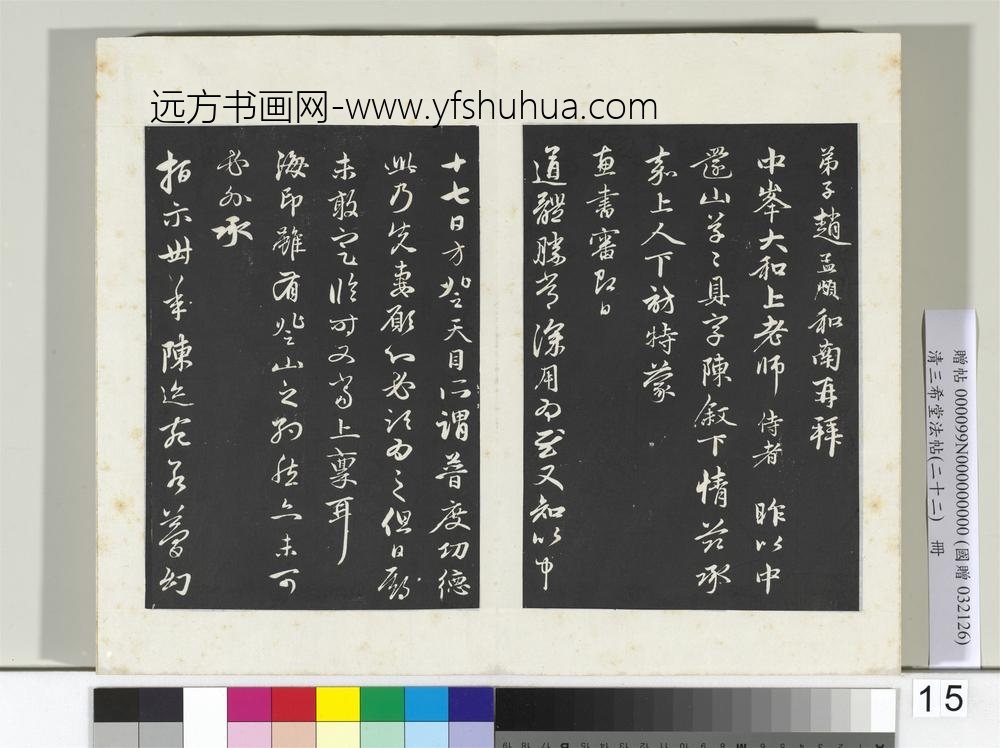 远方书画网-www.yfshuhua.com
弟子趙孟頫和南再拜
中峯大和上老师侍者 昨以中
還山草〻具字陳敘下情茲承
嘉上人下訪特蒙
惠書審即日
道體勝常深用为慰又知以中
十七日方登天目所谓普度功德
此乃先妻願心必須为之但日
未敢定臨时又當上稟耳
海印雖有登山之约然亦未可
必如承
指示世事陳迹如夢幻
贈帖 000099N000000000 (國贈 032126)
清三希堂法帖(二十二) 冊
15